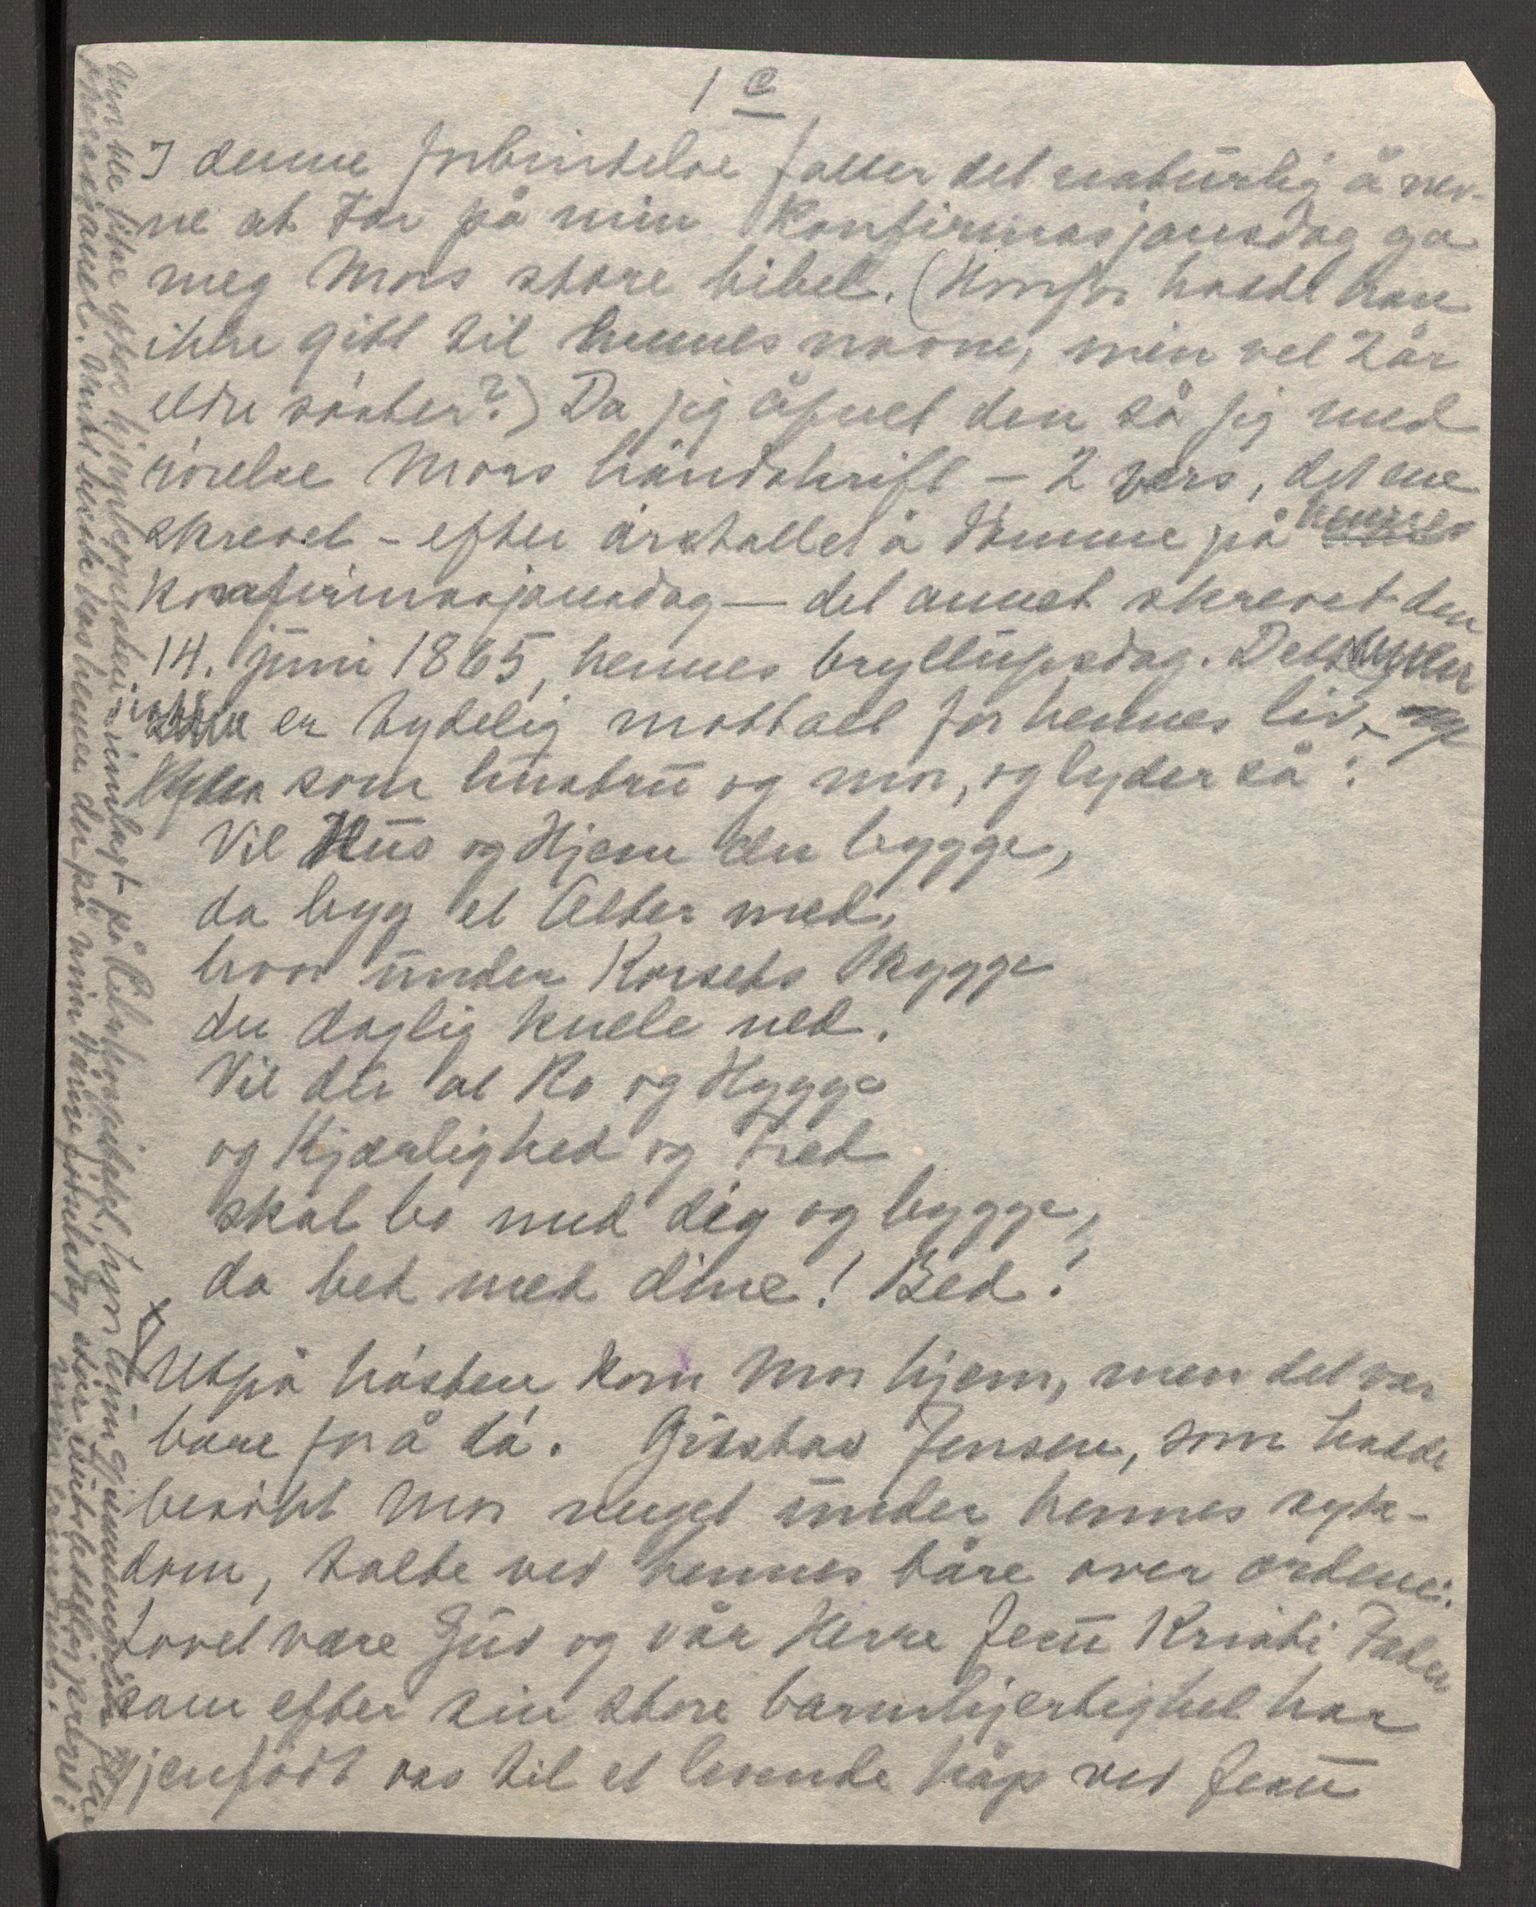 1 c
I denne forbindelse faller det naturlig å nev-
ne at Far på min Konfirmasjonsdag ga
meg Mors store bibel. (Hvorfor hadde han
ikke gitt til hennes navne, min vel 2 år
eldre søster?) Da jeg åpnet den så jeg med
rørelse Mors håndskrift – 2 vers, det ene
skrevet – efter årstallet å dømme på hennes
Konfirmasjonsdag — det annet skrevet den
14. juni 1865, hennes bryllupsdag. Dette
siste er tydelig mottoet for hennes liv
som hustru og mor, og lyder så:
Vil Hus og Hjem du bygge,
da byg et Alter med,
hvor under Korsets Skygge
du daglig knele ned.
Vil du at Ro og Hygge
og Kjærlighed og Fred
skal bo med dig og bygge,
da bed med dine! Bed!
Utpå høsten kom Mor hjem, men det var
bare for å dø. Gustav Jensen, som hadde
besøkt Mor meget under hennes syk-
dom, talte ved hennes båre over ordene:
Lovet være Gud og vår Herre Jesu Kristi Fader
som efter sin store barmhjertighet har
gjenfødt oss til et levende håp ved Jesu
innlagt på Rikshospitalet, hvor hun gjennemgikk flere
operasjoner. Mitt besøk hos henne der på min